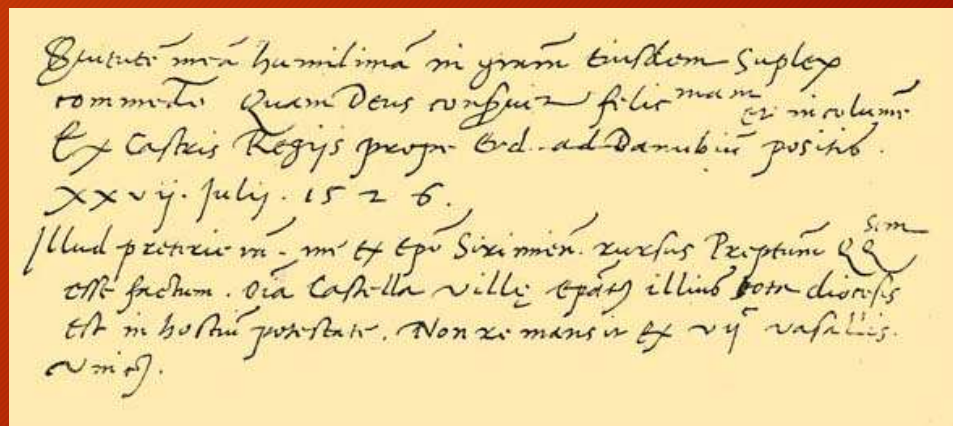 Seruitutē meā humilimā in gram̄ eiusdem suplex
commēdo Quam Deus conseruet felicmam et incolumē
Ex Castris Regijs prope Erd. ad Danubiū positis.
XXvij. Julij. 1526.
Illud preterie me ex Epo Sirimien. rursus Preptum QQ Sim
esse factum. Oīa Castella ville epatus illius tota diocesis
est in hostiū potestate. Non remansit ex vij vasallis.
vnicus.